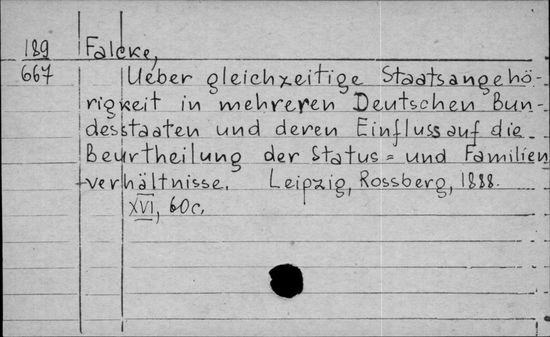 189
667
Falcke,
Ueber gleichzeitige Staatsangehö-
rigkeit in mehreren Deutschen Bun-
desstaaten und deren Einfluss auf die
Beurtheilung der Status= und Familien
verhältnisse. Leipzig, Rossberg, 1888.
XVI, 60c.